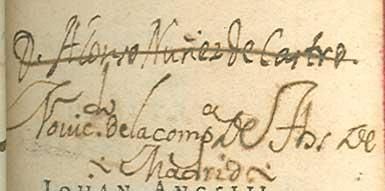 D. Alonso Nuñez de Castro.
Novic.do de la comp.a De Jhs De
Madrid
IOHAN ANGELII